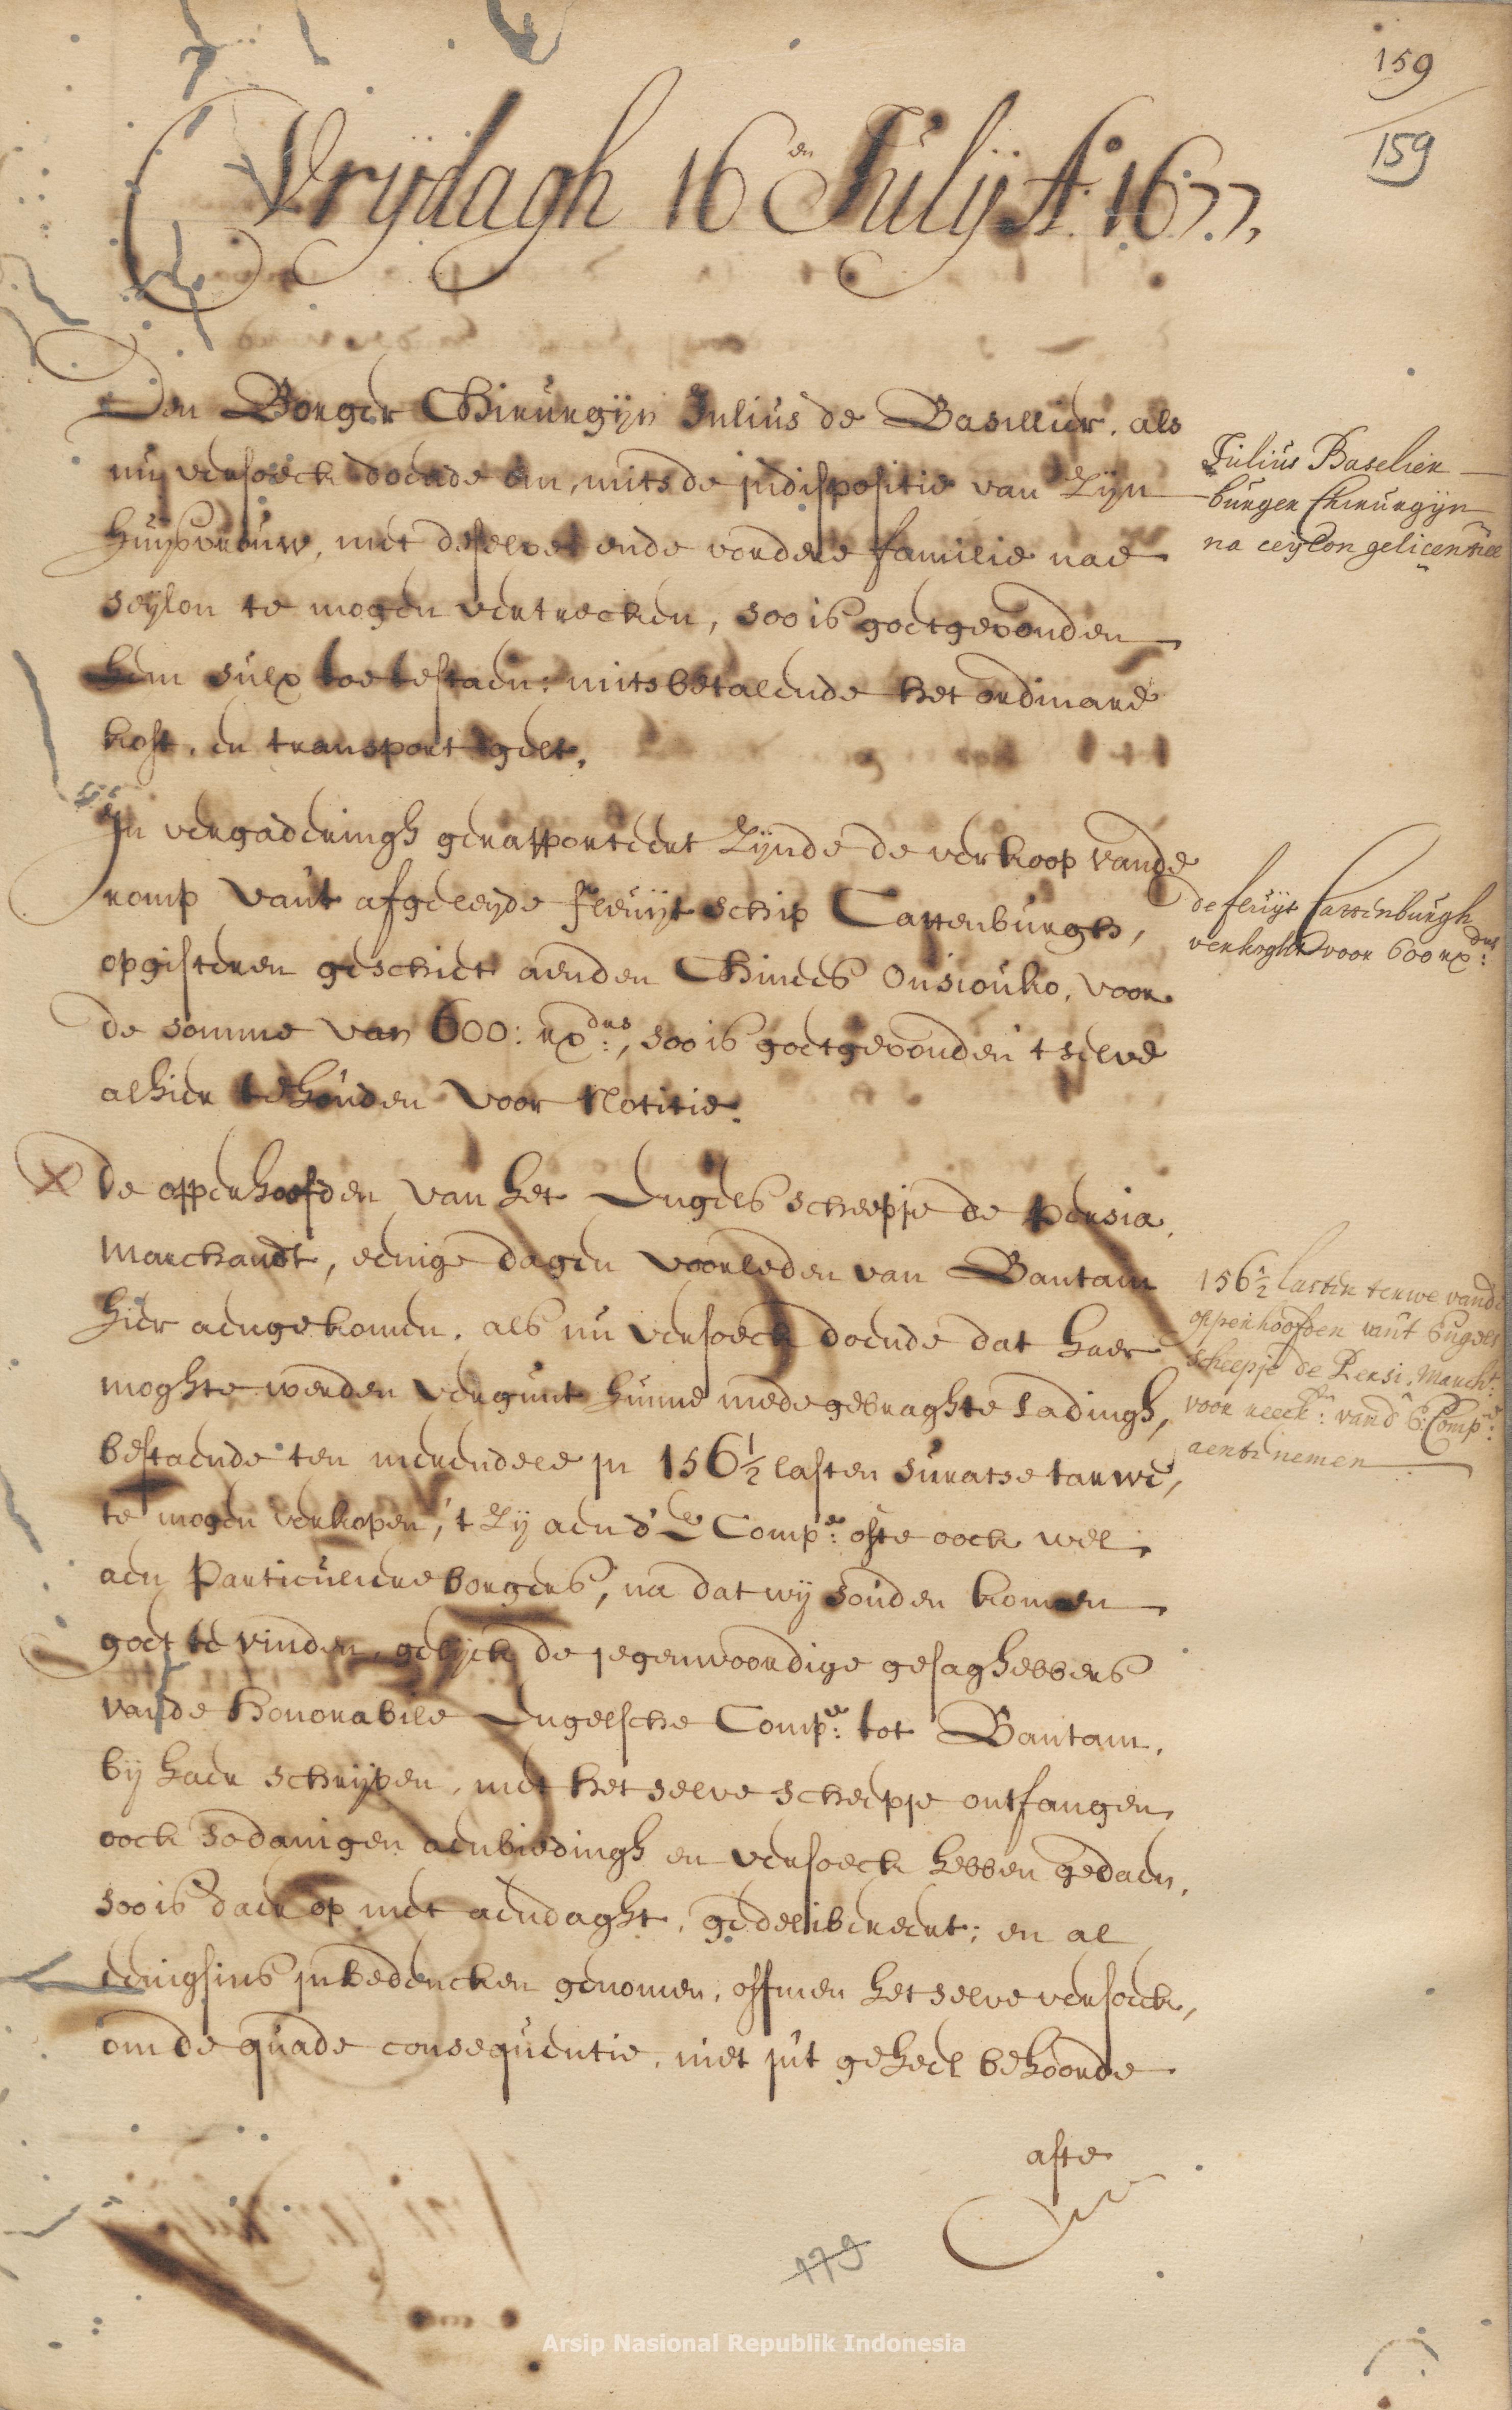 159
159
Vrijdagh 16en Julij Ao. 1677,
Den Borger Chirurgijn Julius de Basellier, als
nu versoeck doende om, mits de jndispositie van Zijn
huijsvrouw, met deselve ende vordere familie nae
seijlon te mogen vertrecken, soo is goetgevonden
hem sulx toe te staen: mits betalende het ordinare
kost, en transport gelt.
Julius Baselier
burger Chirurgijn
na ceijlon gelicentieert
In vergaderingh gerapporteert Zijnde de verkoop vande
romp vant afgeleyde fleuijt schip Cattenburgh,
op gisteren geschiet aenden Chinees Ousiouko, voor
de somme van 600: rxdrs:, soo is goetgevonden t selve
alhier te houden voor Notitie.
de fluijt Cattenburgh
verkoght voor 600 rxdrs:
De opperhoofden van het Engels scheepje de Persia
Marchandt, eenige dagen voorleden van Bantam
hier aengekomen, als nu versoeck doende dat haer
moghte werden vergunt hunne medegebraghte Ladingh,
bestaende ten merendeele jn 156½ lasten suratse tarwe,
te mogen verkopen, 't Zij aen d' E Compe: ofte oock wel
aen Particuliere borgers, na dat wij souden komen
goet te vinden, gelijck de jegenwoordige gesaghebbers
vande honorabile Engelsche Compe: tot Bantam,
bij haer schrijven, met het selve scheepje ontfangen
oock sodanigen aenbiedingh en versoeck hebben gedaen,
soo is daer op met aendaght, gedelibereert; en al
eenigsins jn bedencken genomen, off men het selve versoeck,
om de quade consequentie, niet jut geheel behoorde
156½ lasten terwe vande
opperhoofden vant Engels
scheepje de Persi. Marcht:
voor reeck: vand' E: Compe:
aente nemen
afte
179
Arsip Nasional Republik Indonesia